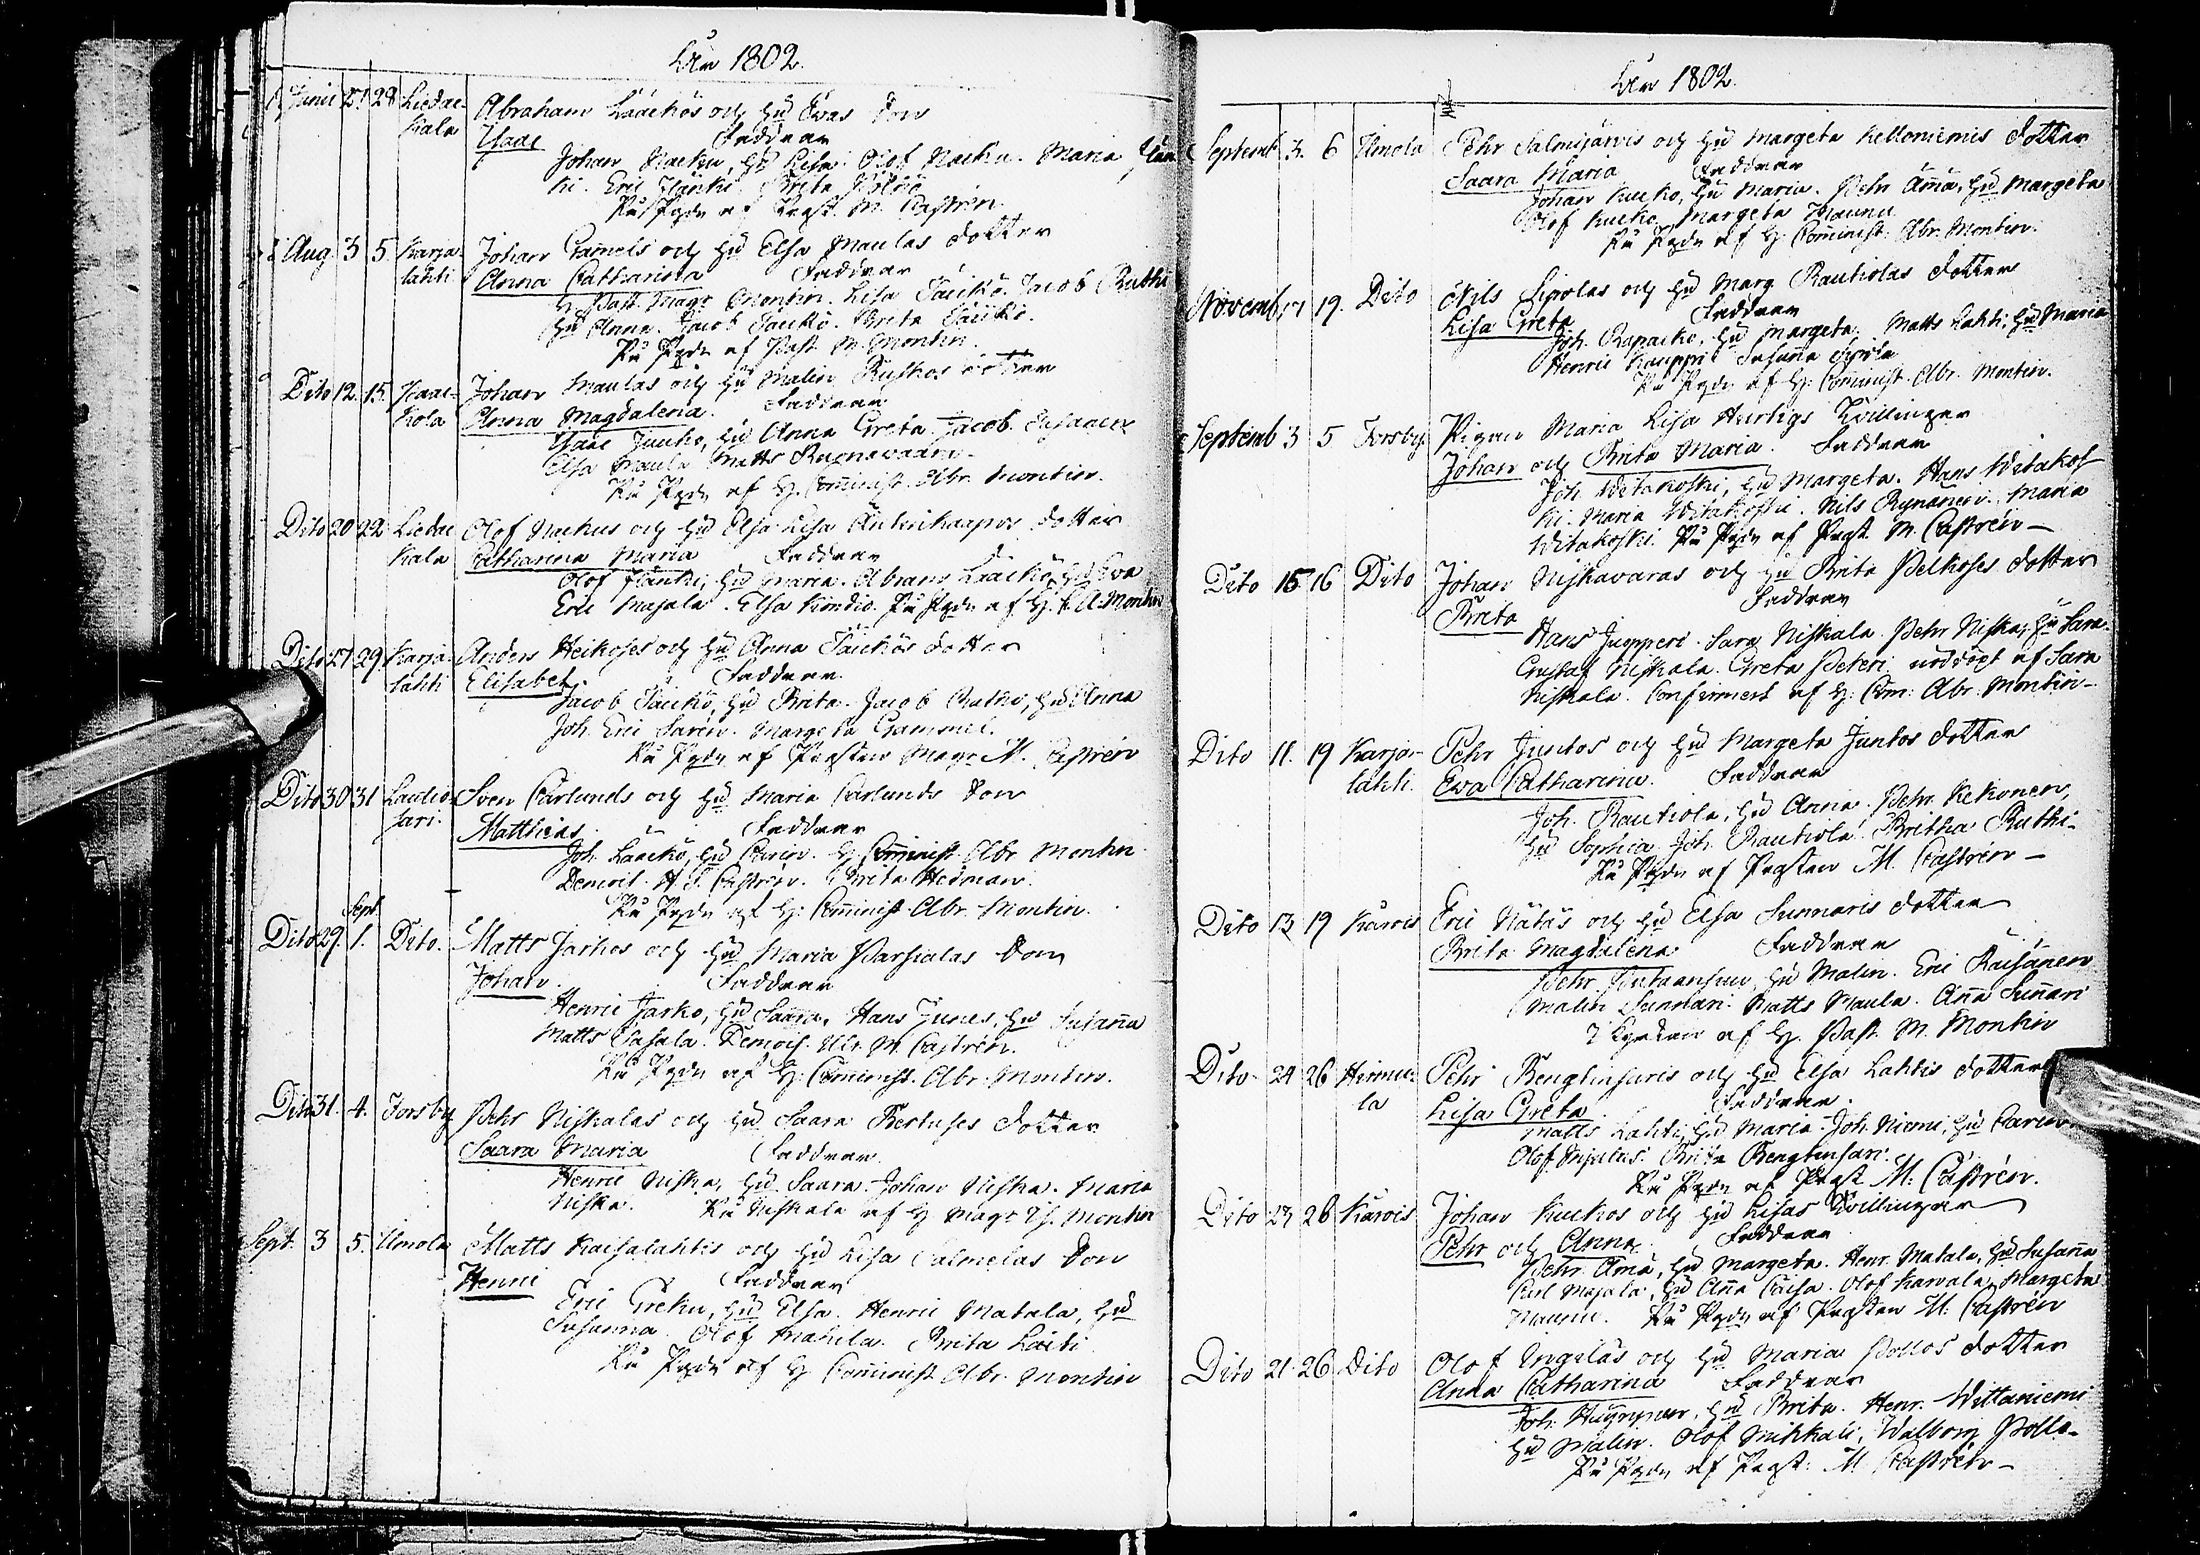 År 1802.
Junii 27 28 Liedak- Abraham Lääckös och Hu Evas Son
kala Isaac Faddrar
Johan Nacku, Hu Lisa. Olof Nacku. Maria Jän
ki. Eric Jänki. Brita
På Pgdn af Prgst. M. Castrén
Aug 3 5 Karja Johan Gamels och Hu Elsa Maulas dotter
lahti Anna Catharina Faddrar
H. Past. Magr Montin. Lisa Säickö. Jacob Ruthi
Hu Anna. Jacob Säickö. Brita Säickö.
På Pgdn af Past. M. Montin.
Dito 12. 15. Kaac- Johan Maulas och Hu Malin Ruskos dotter
kola Anna Magdalena. Faddrar
Isaac Juuko, Hu Anna Greta. Jacob
Elsa Maula Matts
På Pgdn af H. Comminist. Abr. Montin.
Dito 20 22 Liedac Olof Nackus och Hu Elsa Lisa dotter
kala Catharina Maria Faddrar
Olof Jänki, Hu Maria. Abram Lääckö, Hu Eva
Eric Majala. Elsa Kondio. På Pgdn af H. A: Montin
Dito 27 29 Karja- Anders Heikoses och Hu Anna Säickös dotter
lahti Elisabet. Faddrar
Jacob Säickö, Hu Brita. Jacob Ruthi, Hu Anna
Joh. Eric Saren. Margeta Gammel.
På Pgdn af Prgsten Magr M. Castrén
Dito 30 31 Lautio- Sven Carlunds och Hu Maria Carlunds Son
sari. Matthias. Faddrar
Joh. Laacko, Hu Carin. H. Comminist. Abr. Montin
Demoil. H. S. Castrén. Brita Hedman.
På Pgdn af H. Comminist. Abr. Montin.
Sept.
Dito 29 1. Dito. Matts Jarkos och Hu Maria Parsialas Son
Johan. Faddrar
Henric Jarko, Hu Saara. Hans Junes, Hu Susana
Matts Sasala. Demois. Ulr. M. Castrén.
På Pgdn af H. Comminist. Abr. Montin.
Dito 31. 4. Forsby Pehr Niskalas och Hu Saara Bertuses dotter
Saara Maria Faddrar.
Henric Niska, Hu Saara. Johan Niska. Maria
Niska. På Niskala af H Magr Montin
Sept. 3 5. Ulmola Matts Kaisalahtis och Hu Lisa Salmelas Son
Henric Faddrar
Eric Greku, Hu Elsa. Henric Matala, Hu
Susanna. Olof Matila. Brita Laiti
På Pgdn af H Comminist Abr. Montin
År 1802.
Septemb 3. 6 Ulmola Pehr Salmijärvis och Hu Margeta Kelloniemis dotter
Saara Maria Faddrar
Johan Kucko, Hu Maria. Pehr Äma, Hu Margeta
Olof Kucko Margeta Maunu
På Pgdn af H: Comminist. Abr. Montin.
Novemb 17 19. Dito Nils Sipolas och Hu Marg. Rautiolas dotter
Lisa Greta Faddrar
Joh. Rapacko, Hu Margeta. Matts Lahti, Hu Maria
Henric Kauppi Susana
På Pgdn af H: Comminist. Abr. Montin.
Septemb 3 5 Forsby Pigan Maria Lisa Hurtigs Tvillingar
Johan och Brita Maria. Faddrar
Joh. Witakoski, Hu Margeta. Hans Witakos
ki. Maria Witakoski. Nils Rynänen. Maria
Witakoski. På Pgdn af Prgst. M. Castrén—
Dito 15 16 Dito Johan Niskavaaras och Hu Brita Pelkoses dotter
Brita Faddrar
Hans Jupperi. Sara Niskala. Pehr Niska, Hu Sara.
Gustaf Niskala. Greta Peteri. nöddöpt af Sara
Niskala. Confirmert af H: Com: Abr. Montin—
Dito 11. 19 Karja- Pehr Juntos och Hu Margeta Juntos dotter
lahti. Ewa Catharina. Faddrar
Joh. Rautiola, Hu Anna. Pehr Kekonen,
Hu Sophia. Joh. Rautiola. Britha Ruthi.
På Pgdn af Prgsten M. Castrén—
Dito 13 19 Kärois Eric Nätäs och Hu Elsa Sunnaris dotter
Brita Magdalena Faddrar
Pehr Putaansuu, Hu Malin. Eric Räisänen
Malin Sunnari. Matts Maula. Ana Sunari
I Kyrckan af H. Past. M. Montin
Dito 24 26 Hirmu- Pehr Bengtinsuris och Hu Elsa Lahtis dotter
la Lisa Greta Faddrar.
Matts Lahti, Hu Maria. Joh. Niemi, Hu Carin
Olof Brita Bengtinsari.
På Pgdn af Prgst M. Castrén.
Dito 23 26 Kärois Johan Kuckos och Hu Lisas Tvillingar
Pehr och Anna Faddrar
Pehr Ämä, Hu Margeta. Henr. Matala, Hu Susana
Carl Majala, Hu Ana Caisa. Olof Karvala, Margeta
Maunu. På Pgdn af Prgsten M. Castrén
Dito 21. 26 Dito Olof Ingeläs och Hu Maria Pollos dotter
Anna Catharina Faddrar
Joh. Hu Brita. Henr. Wittaniemi
Hu Malin. Olof Mikkali, Walborg Pollo.
På Pgdn af Prgst: M Castrén—